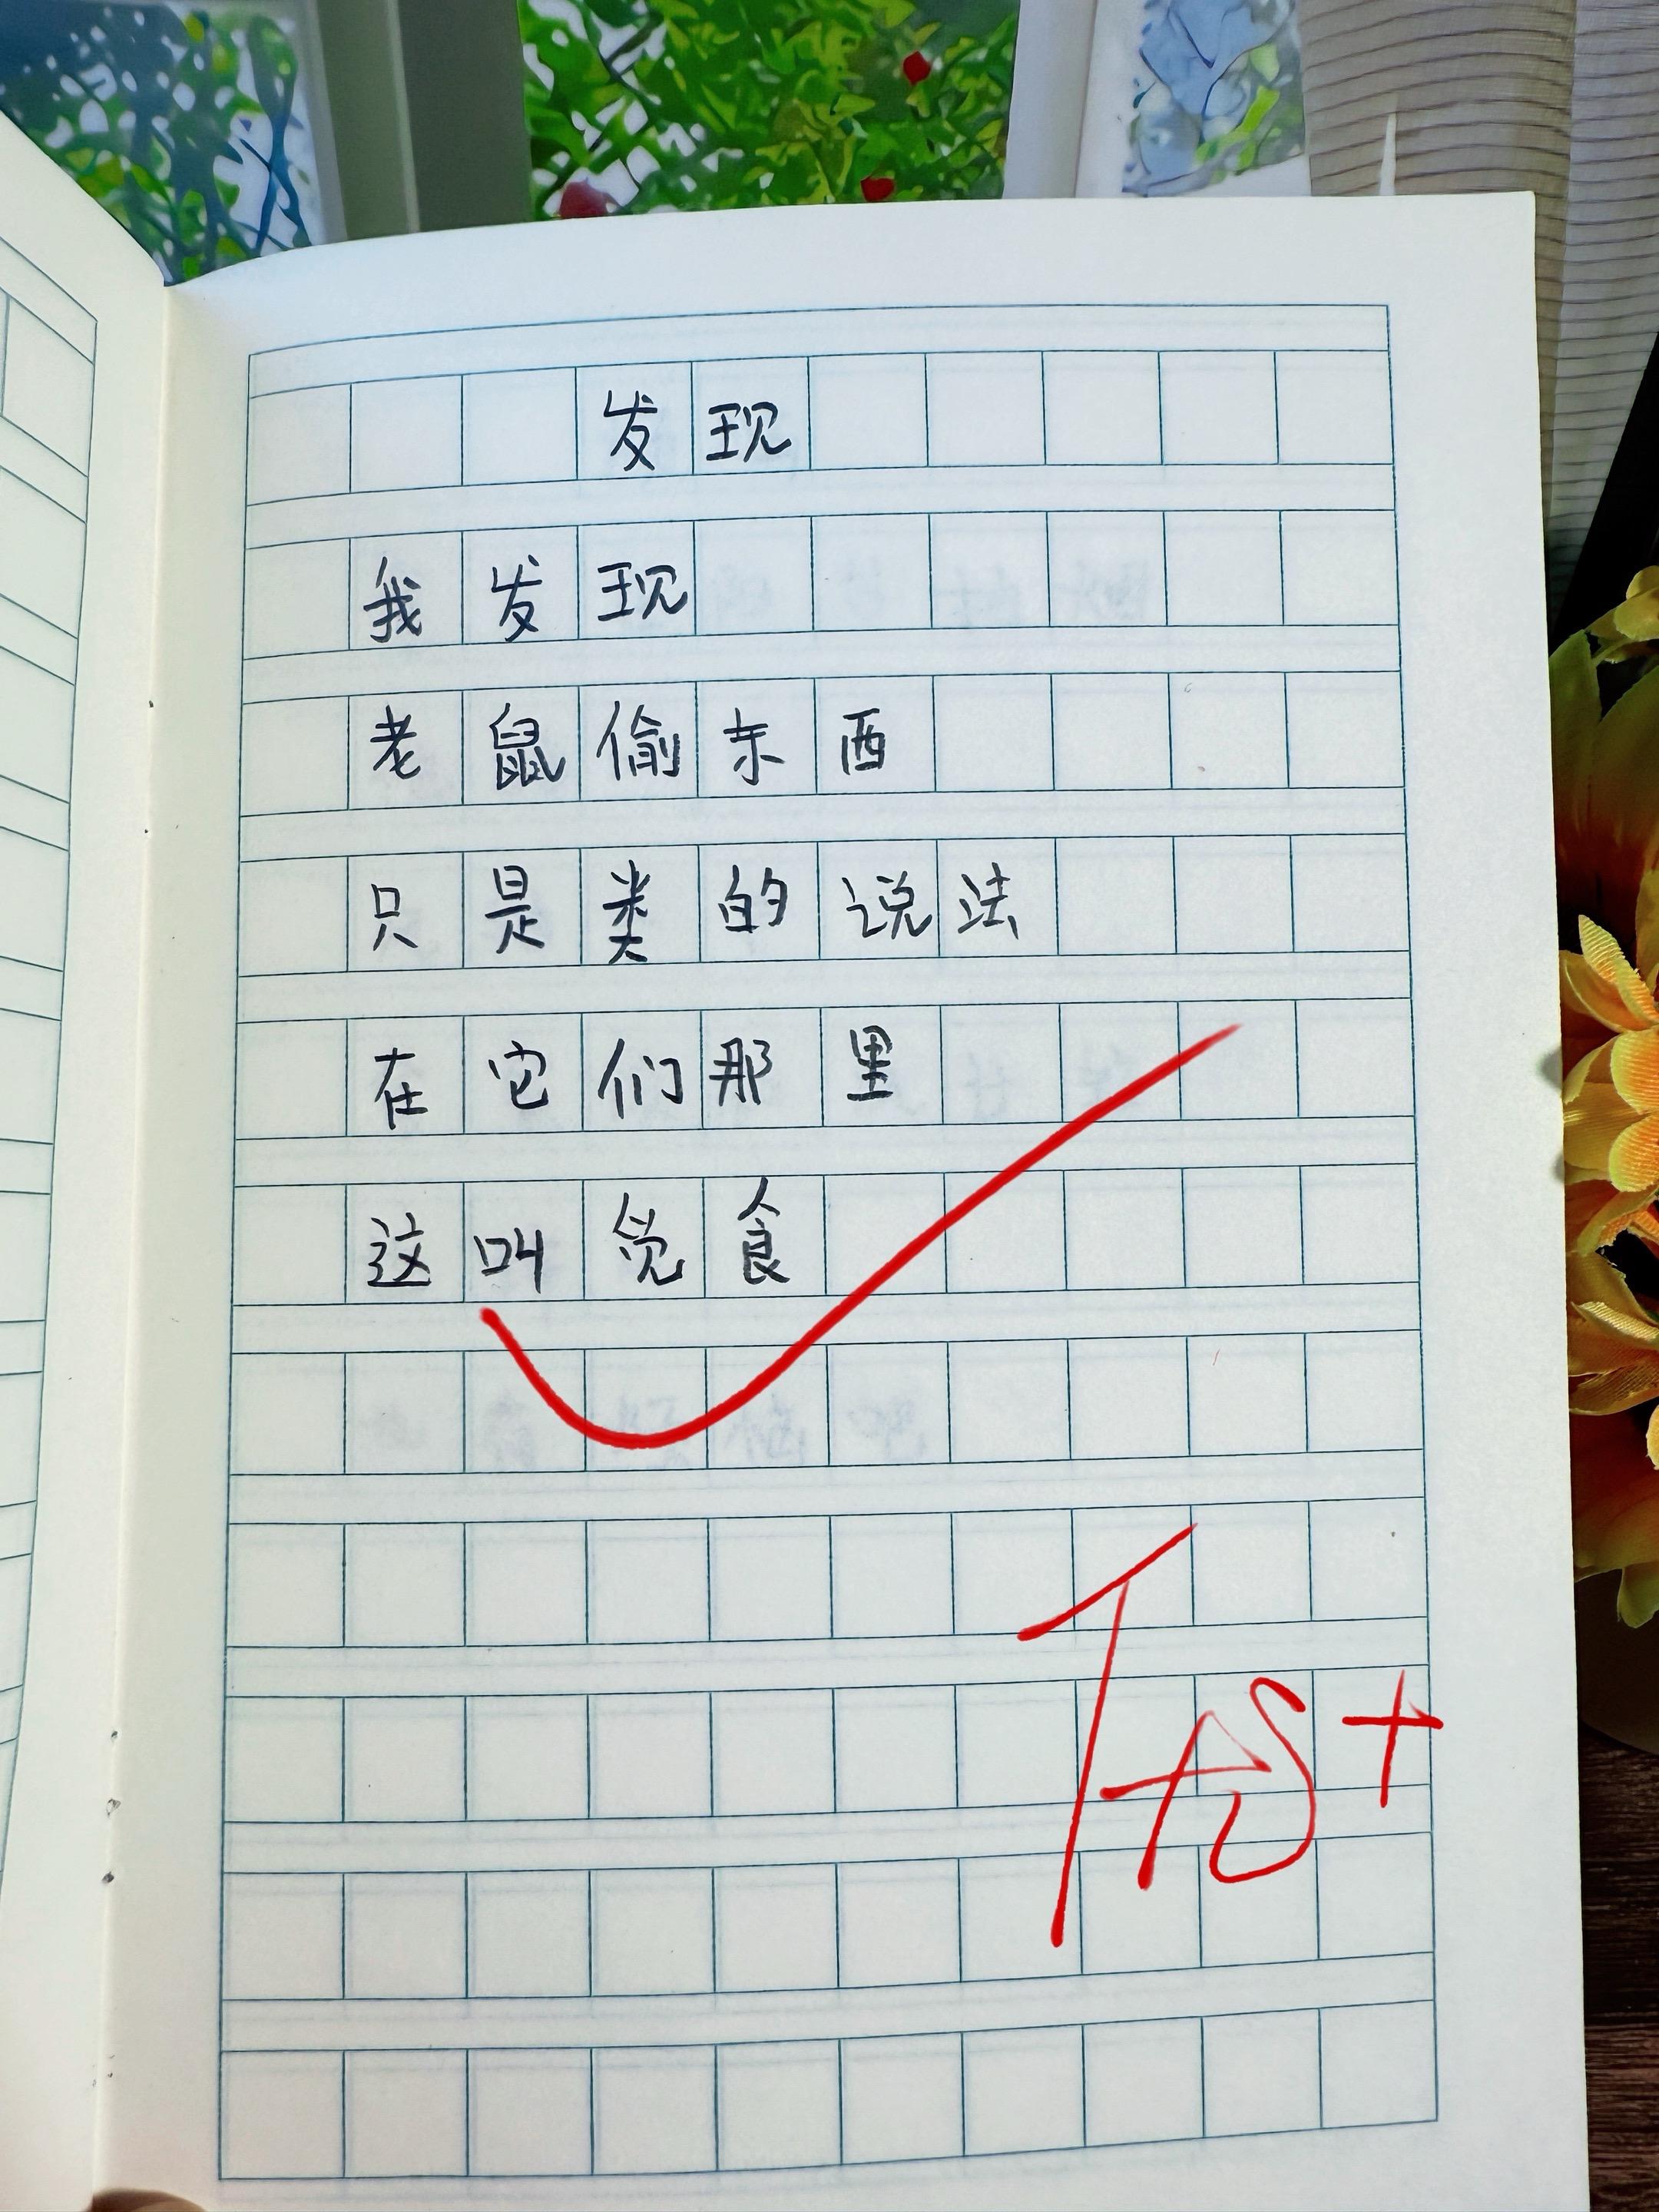 发现
我发现
老鼠偷东西
只是类的说法
在它们那里
这叫觅食